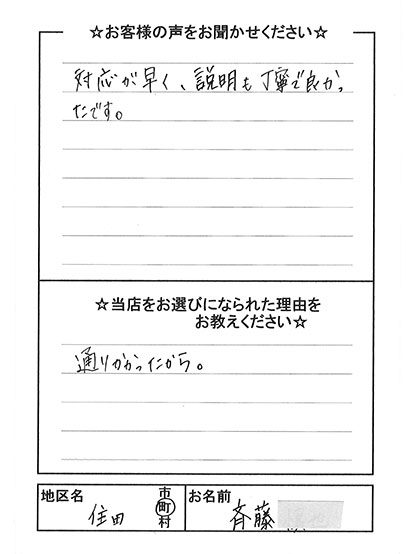 ☆お客様の声をお聞かせください☆
対応が早く、説明も丁寧で良かっ
たです。
☆当店をお選びになられた理由を
お教えください☆
通りかかったから。
地区名
住田
市
町
村
お名前
斉藤